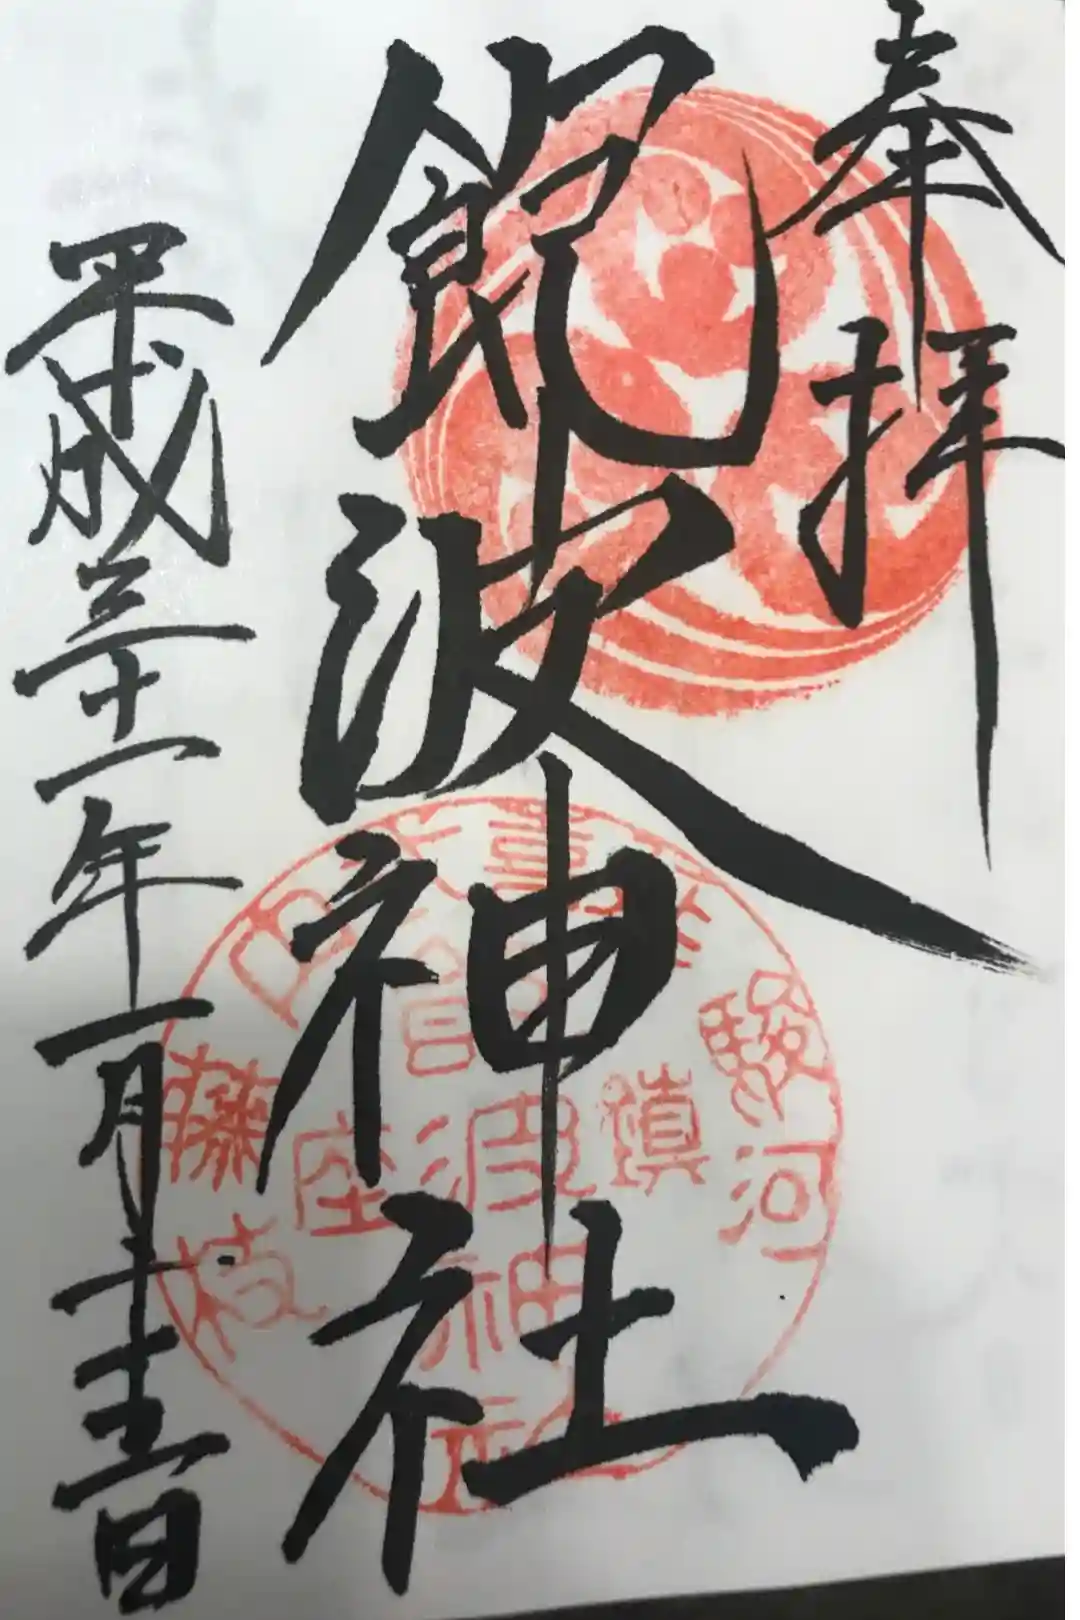 奉拝
飽波神社
平成三十一年一月十三日
駿河
藤枝
鎮座
波神社